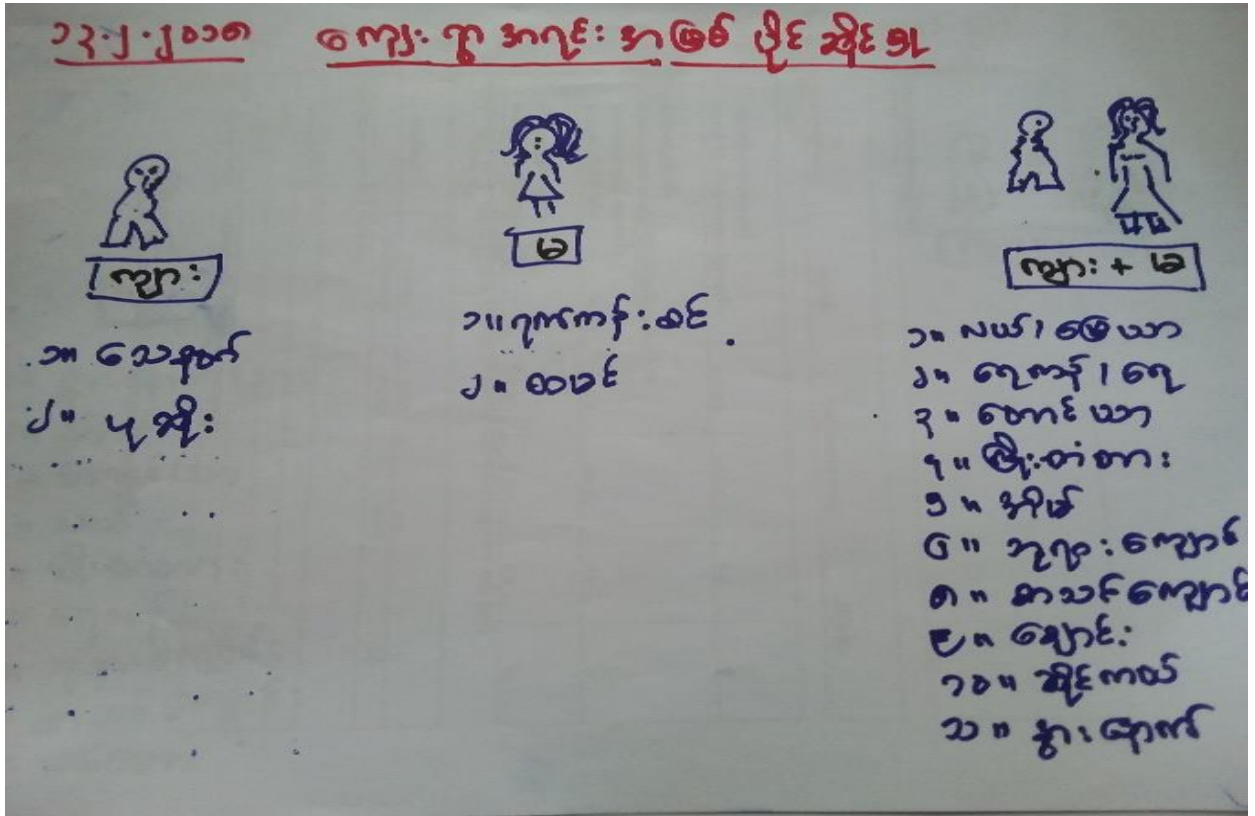 ၁၃.၂.၂၀၁၈ ကျေးရွာအရင်းအမြစ်ပိုင်ဆိုင်မှု
ကျား
၁။ သေနတ်
၂။ ပုဆိုး
မ
၁။ ရက်ကန်းစင်
၂။ ထမင်
ကျား + မ
၁။ လယ်၊ မြေယာ
၂။ ရေကန်၊ ရေ
၃။ တောင်ယာ
၄။ မြို့းတံတား
၅။ အိမ်
၆။ ဘုရားကျောင်
၈။ စာသင်ကျောင်
၉။ ချောင်း
၁၀။ ဆိုင်ကယ်